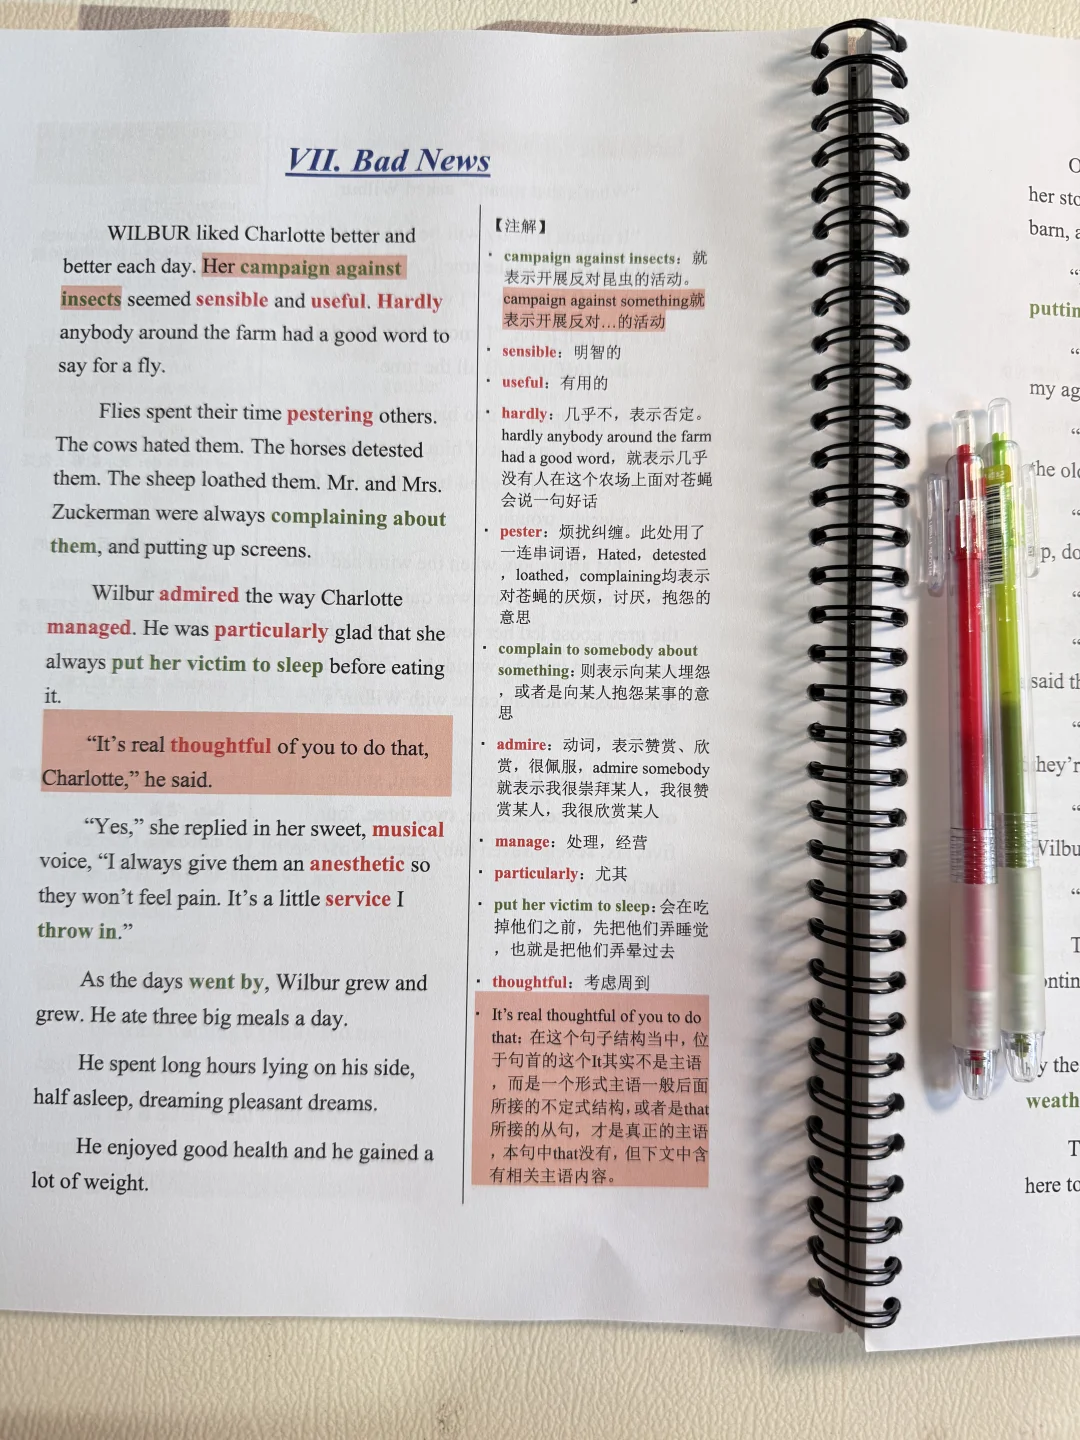 VII. Bad News
WILBUR liked Charlotte better and
better each day. Her campaign against
insects seemed sensible and useful. Hardly
anybody around the farm had a good word to
say for a fly.
Flies spent their time pestering others.
The cows hated them. The horses detested
them. The sheep loathed them. Mr. and Mrs.
Zuckerman were always complaining about
them, and putting up screens.
Wilbur admired the way Charlotte
managed. He was particularly glad that she
always put her victim to sleep before eating
it.
“It’s real thoughtful of you to do that,
Charlotte,” he said.
“Yes,” she replied in her sweet, musical
voice, “I always give them an anesthetic so
they won’t feel pain. It’s a little service I
throw in.”
As the days went by, Wilbur grew and
grew. He ate three big meals a day.
He spent long hours lying on his side,
half asleep, dreaming pleasant dreams.
He enjoyed good health and he gained a
lot of weight.
【注解】
· campaign against insects：就
表示开展反对昆虫的活动。
campaign against something就
表示开展反对…的活动
· sensible：明智的
· useful：有用的
· hardly：几乎不，表示否定。
hardly anybody around the farm
had a good word，就表示几乎
没有人在这个农场上面对苍蝇
会说一句好话
· pester：烦扰纠缠。此处用了
一连串词语，Hated，detested
，loathed，complaining均表示
对苍蝇的厌烦，讨厌，抱怨的
意思
· complain to somebody about
something：则表示向某人埋怨
，或者是向某人抱怨某事的意
思
· admire：动词，表示赞赏、欣
赏，很佩服，admire somebody
就表示我很崇拜某人，我很赞
赏某人，我很欣赏某人
· manage：处理，经营
· particularly：尤其
· put her victim to sleep：会在吃
掉他们之前，先把他们弄睡觉
，也就是把他们弄晕过去
· thoughtful：考虑周到
· It’s real thoughtful of you to do
that：在这个句子结构当中，位
于句首的这个It其实不是主语
，而是一个形式主语一般后面
所接的不定式结构，或者是that
所接的从句，才是真正的主语
，本句中that没有，但下文中含
有相关主语内容。
her sto
barn, a
puttin
my ag
the old
p, do
said th
they’r
Wilbu
ontin
y the
weath
here to